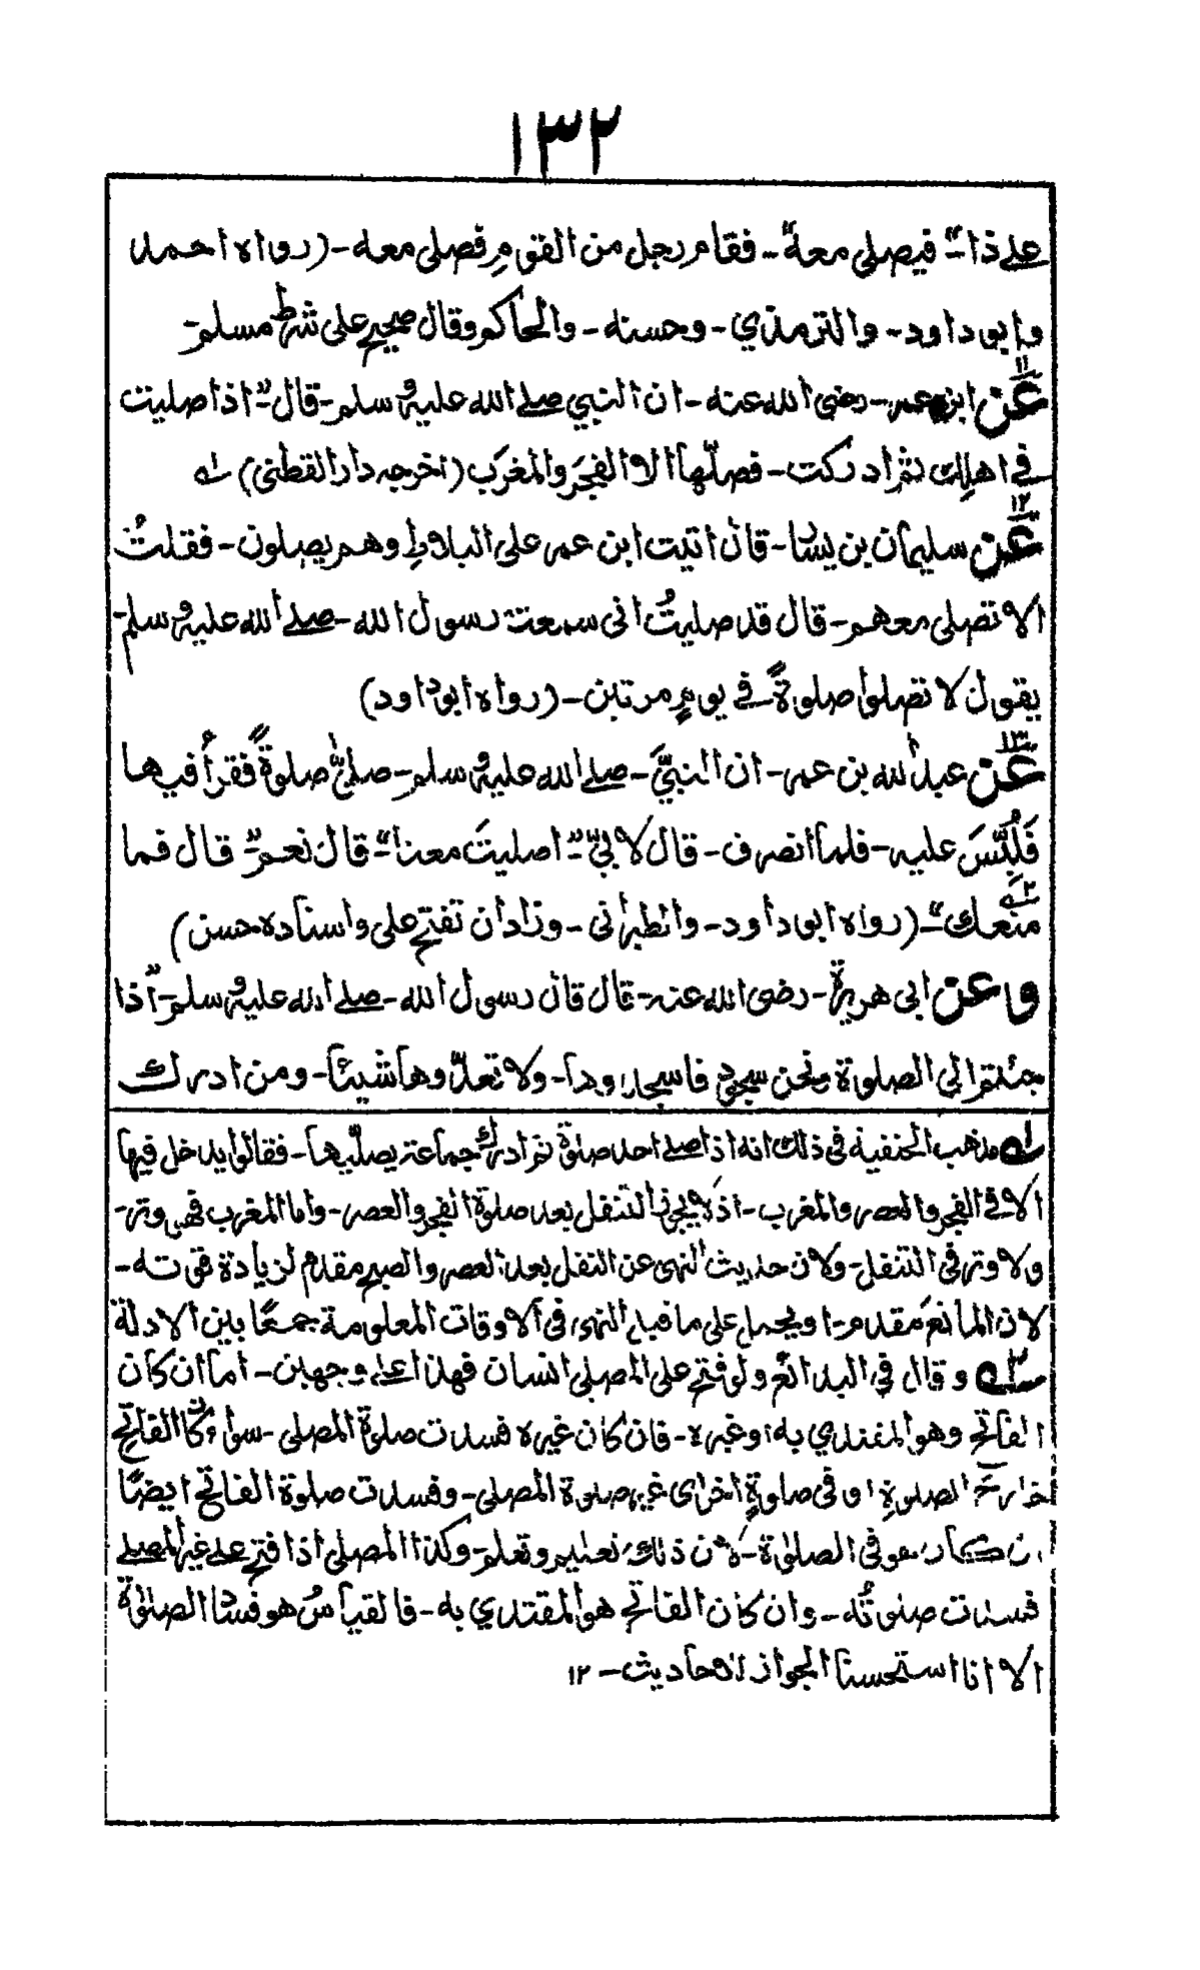 ١٣٢
علے ذا"۔ فيصلى معهٗ"۔ فقام رجل من القومِ فصلى معه۔ (رواه احمد
وابو داود۔ والترمذي۔ وحسنه۔ والحاكم وقال صحيح على شرط مسلم۔
١١
عن ابن عمر۔ رضى الله عنه۔ ان النبي صلے الله عليه وسلم۔ قال"۔ اذا صليت
فے اهلك ثم ادركت۔ فصلّها الا الفجرَ والمغربَ (اخرجه دار القطنى) لہ
١٢
عن سليمان بن يسار۔ قال اتيت ابن عمر على البلاطِ وهم يصلون۔ فقلتُ
الا تصلى معهم۔ قال قد صليتُ انى سمعت رسول الله۔ صلے الله عليه وسلم۔
يقول لا تصلوا صلوةً فے يومٍ مرتين۔ (رواه ابو داود)
١٣
عن عبد الله بن عمر۔ ان النبيَّ۔ صلے الله عليه وسلم۔ صلىّٰ صلوةً فقرأ فيها
فَلُبِّسَ عليه۔ فلما انصرف۔ قال لابيّ"۔ اصليتَ معنا"۔ قال نعم"۔ قال فما
منعك"۔ ٢ (رواه ابو داود۔ والطبرانى۔ وزاد ان تفتح على واسناده حسن)
وعن ابى هريرة۔ رضى الله عنه۔ قال قال رسول الله۔ صلے الله عليه وسلم۔" اذا
جئتم الى الصلوة ونحن سجود فاسجدوا۔ ولا تعدّوها شيئا۔ ومن ادرك
لہ مذهب الحنفية فى ذلك انه اذا صلے احد صلوة ثم ادرك جماعة يصلّيها۔ فقالوا يدخل فيها
الا فے الفجر والعصر والمغرب۔ اذ لا يجوز التنفل بعد صلوة الفجر والعصر۔ واما المغرب فهى وتر۔
ولا وتر فى التنفل۔ ولان حديث النهى عن النفل بعد العصر والصبح مقدم لزيادة قوته۔
لان المانعَ مقدم۔ او يحمل على ما قبل النهى فى الاوقات المعلومة جمعًا بين الادلة
٢ہ وقال فى البدائع ولو فتح على المصلى انسان فهذا على وجهين۔ اما ان كان
الفاتح وهو المقتدي به او غيره۔ فان كان غيره فسدت صلوة المصلى۔ سواء كان الفاتح
خارج الصلوةِ او فى صلوةٍ اخرى غير صلوة المصلى۔ وفسدت صلوة الفاتح ايضًا
ان كان هو فى الصلوة۔ لان ذلك تعليم وتعلم۔ وكذا المصلى اذا فتح على غير المصلے
فسدت صلوتُه۔ وان كان الفاتح هو المقتدي به۔ فالقياسُ هو فساد الصلوة
الا انا استحسنا الجواز لاحاديث۔ ١٢